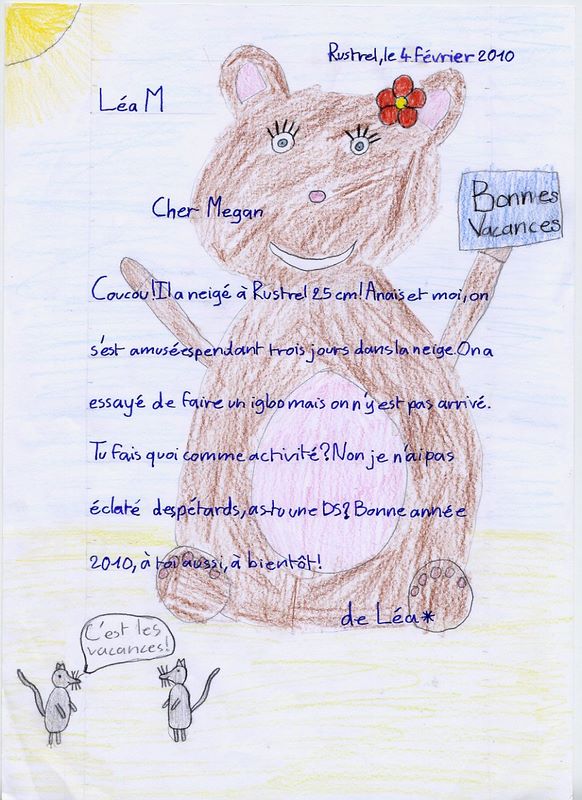 Rustrel, le 4 Février 2010
Léa M
Bonnes
Vacances
Cher Megan
Coucou! Il a neigé à Rustrel 25 cm! Anaïs et moi, on
s'est amusées pendant trois jours dans la neige. On a
essayé de faire un igbo mais on n'y est pas arrivé.
Tu fais quoi comme activité? Non je n'ai pas
éclaté des pétards, as-tu une DS? Bonne année
2010, à toi aussi, à bientôt!
de Léa*
C'est les
vacances!